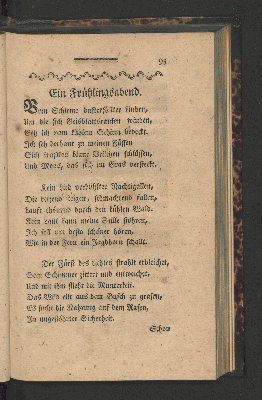 95
Ein Frühlingsabend.
Vom Schirme dufterfüllter Linden,
Um die sich Geisblattranken winden,
Von kühlem bedeckt.
Ich seh zu meinen Füssen
Sich blaue Veilchen schliessen,
Und Moos, das sich im Gras versteckt.
Kein Lied Nachtigallen,
Die steigen, schmachtend fallen,
durch den kühlen Wald.
meine Stille stöhren,
Ich soll um desto schöner hören,
Wie in der Fern ein Jagdhorn schallt.
Der Fürst des Lichtes strahlt erbleichet,
Sein Schimmer zittert und entweichet,
Und mit ihm flieht die Munterkeit.
Das Wild eilt aus dem Busch zu grasen,
Es sucht die Nahrung auf dem Rasen,
In ungestöhrter Sicherheit.
Schon